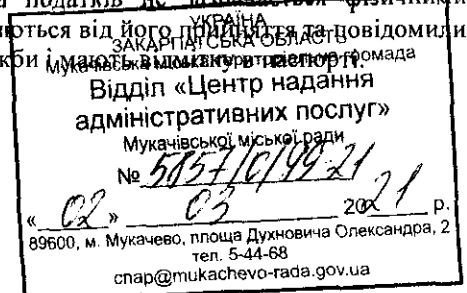 податків не
фізичними
ються від його прийняття та повідомили
жби і мають відмітку в паспорті.
УКРАЇНА
ЗАКАРПАТСЬКА ОБЛАСТЬ
Мукачівська міська територіальна громада
Відділ «Центр надання
адміністративних послуг»
Мукачівської міської ради
№ 5857/0/99-21
« 02 » 03 2021 р.
89600, м. Мукачево, площа Духновича Олександра, 2
тел. 5-44-68
cnap@mukachevo-rada.gov.ua